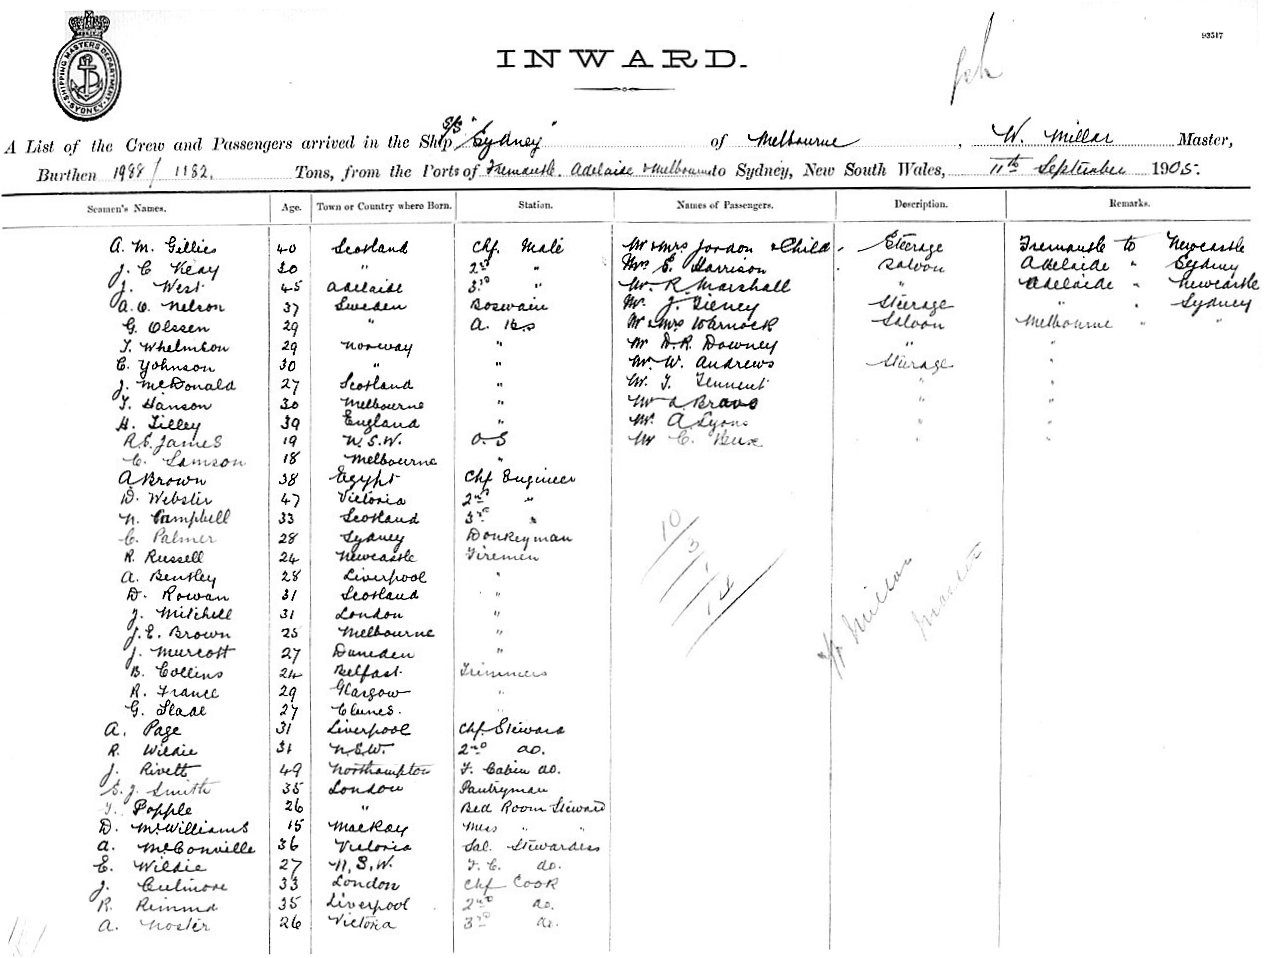 93517
SHIPPING MASTERS DEPARTMENT SYDNEY
INWARD.
A List of the Crew and Passengers arrived in the Ship S/S "Sydney" of Melbourne, W. Millar Master,
Burthen 1988/1182. Tons, from the Ports of Fremantle. Adelaide & Melbourne to Sydney, New South Wales, 11th September 1905.
Seamen's Names. Age. Town or Country where Born. Station. Names of Passengers. Description. Remarks.
A. M. Gillies 40 Scotland Chf. Mate Mr & Mrs Jordon & Child Steerage Fremantle to Newcastle
J. C. Keay 30 " 2nd " Mrs E. Harrison Saloon Adelaide " Sydney
J. West 45 Adelaide 3rd " Mr. R. Marshall " Adelaide " Newcastle
A. O. Nelson 37 Sweden Boswain Mr. J. Tieney Steerage " " Sydney
G. Olssen 29 " A. Bs Mr & Mrs Warnock Saloon Melbourne " "
T. Whelmson 29 Norway " Mr D. R. Downey " "
C. Yohnson 30 " " Mr. W. Andrews Steerage "
J. McDonald 27 Scotland " Mr. T. Tennent " "
T. Hanson 30 Melbourne " Mr A Bravo " "
H. Tilley 39 England " Mr. A Lyons " "
R. E. James 19 N.S.W. O.S Mr C. " "
C. Samson 18 Melbourne "
A Brown 38 Egypt Chf Engineer
D. Webster 47 Victoria 2nd "
N. Campbell 33 Scotland 3rd "
C. Palmer 28 Sydney Donkeyman
R. Russell 24 Newcastle Firemen
A. Bentley 28 Liverpool "
D. Rowan 31 Scotland "
J. Mitchell 31 London "
J. E. Brown 25 Melbourne "
J. Murcott 27 Duneden "
B. Collins 24 Belfast Trimmers
R. France 29 Glasgow "
G. Slade 27 Clunes. "
A. Page 31 Liverpool Chf. Steward
R. Wildie 31 N.S.W. 2nd do.
J. Rivett 49 Northampton F. Cabin do.
E. J. Smith 35 London Pantryman
T. Popple 26 " Bed Room Steward
D. McWilliams 15 Mackay Mess " "
A. McConville 36 Victoria Sal. Stewardess
E. Wildie 27 N.S.W. F. C. do.
J. Culmore 33 London Chf Cook
R. Rimmd 35 Liverpool 2nd do.
A. Noster 26 Victoria 3rd do.
10/
3/
1/
14
Millar
Master